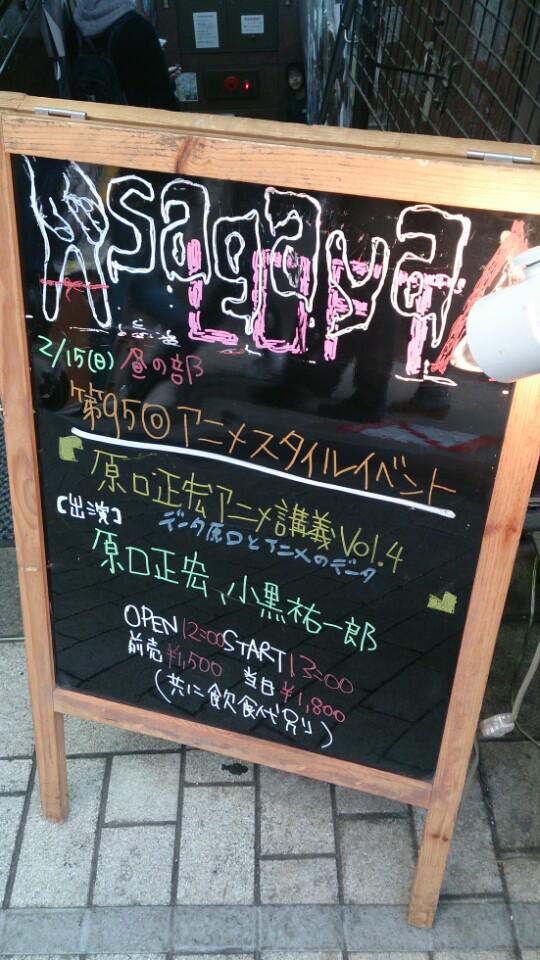 Asagaya/
LOFT A
2/15(日) 昼の部
第95回アニメスタイルイベント
「原口正宏アニメ講義Vol.4
データ原口とアニメのデータ」
【出演】
原口正宏、小黒祐一郎
OPEN12:00START13:00
前売¥1,500 当日¥1,800
(共に飲食代別り)